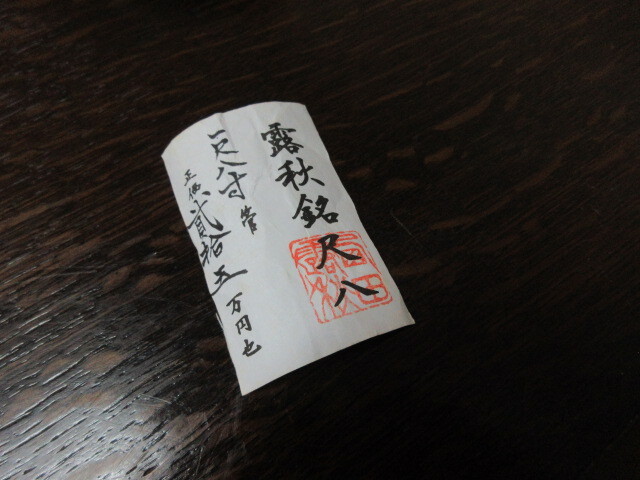 露秋銘尺八
一尺八寸管
正価弐拾五万円也